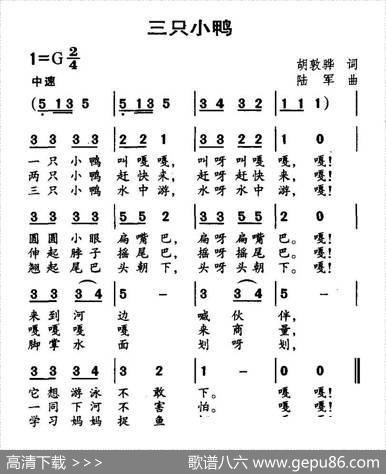 三只小鸭
1=G 2/4
胡敦骅 词
中速
陆军 曲
(5 13 5 | 5·1 13 5 | 34 32 | 11 1) |
33 33 | 22 1 | 33 32 | 1 0 |
一只小鸭 叫嘎嘎, 叫呀叫嘎 嘎,嘎!
两只小鸭 赶快来, 赶呀赶快 来,嘎!
三只小鸭 水中游, 水呀水中 游,嘎!
33 33 | 55 3 | 53 55 | 2 0 |
圆圆小眼 扁嘴巴, 扁呀扁嘴 巴。嘎!
伸起脖子 摇尾巴, 摇呀摇尾 巴。嘎!
翘起尾巴 头朝下, 头呀头朝 下。嘎!
33 34 | 5 - | 3 34 | 5 - |
来到河 边 喊伙 伴,
嘎嘎嘎 嘎 来商 量,
脚掌水 面 划呀 划,
它想游泳 不敢 下。 嘎嘎!
一同下河 不害 怕。 嘎嘎!
学习妈妈 捉鱼
高清下载 >>>
歌谱八六 www.gepu86.com